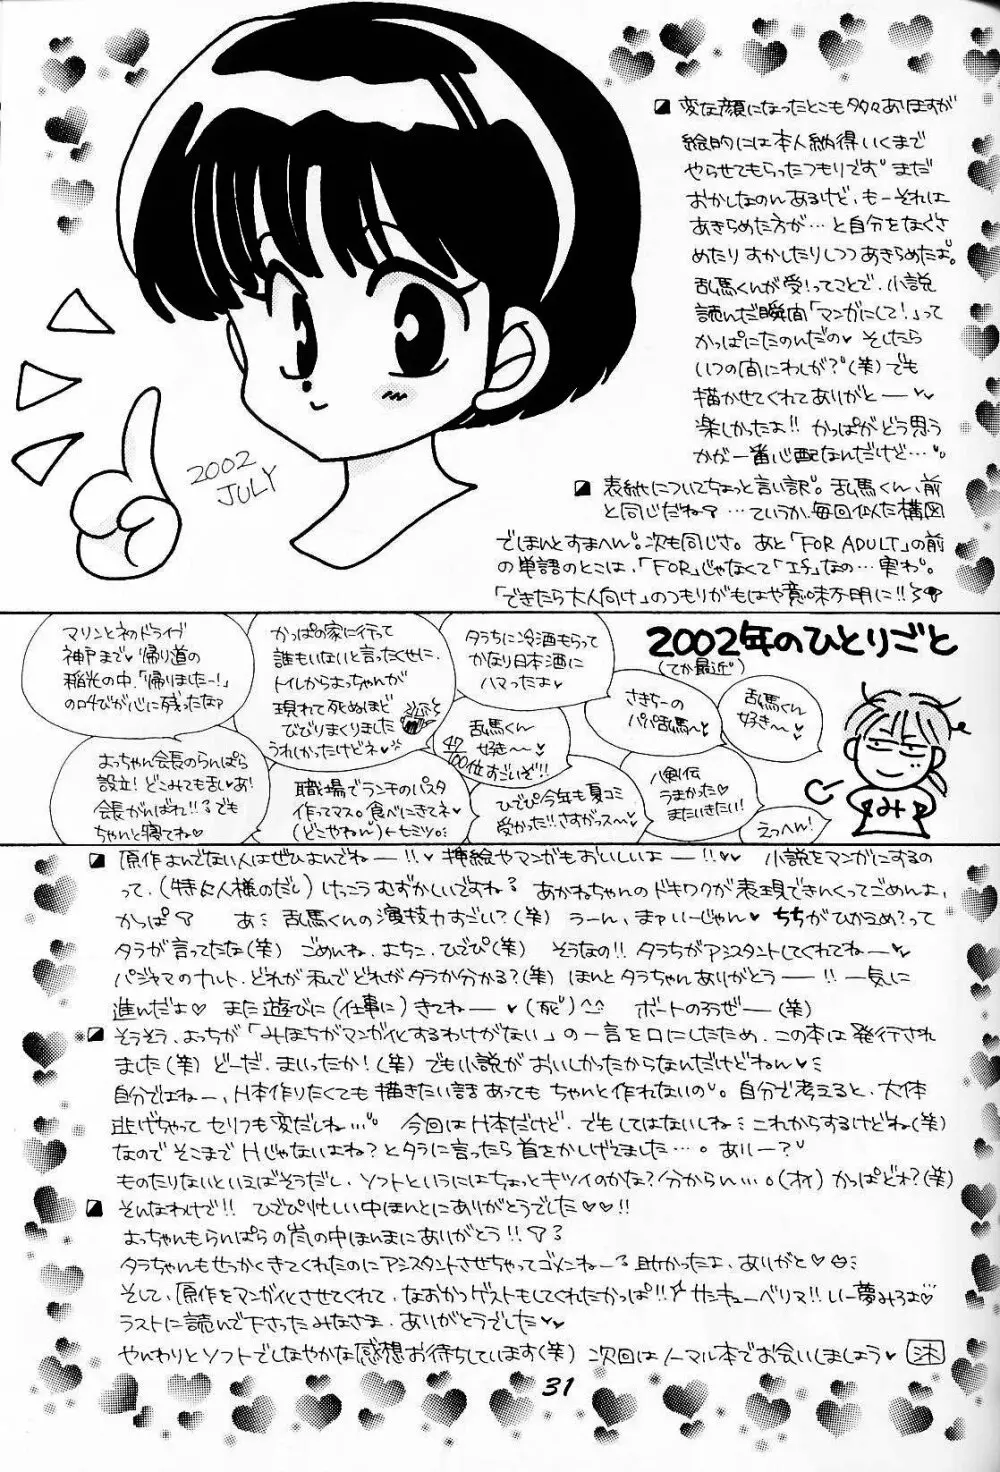 変な顔になったとこも多々ありますが
絵的には本人納得いくまで
やらせてもらったつもりです。まだ
おかしなのんあるけど、もーそれは
あきらめた方が…と自分をなぐさ
めたりすかしたりしつつあきらめたよ。
乱馬くんが受!ってことで、小説
読んだ瞬間「マンガにして!」って
かっぱにたのんだの♥ そしたら
いつの間にわしが?(笑)でも
描かせてくれてありがとー♥
楽しかったよ!! かっぱがどう思う
かが一番心配なんだけど…。
表紙についてちょっと言い訳。乱馬くん、前
と同じだね? …ていうか、毎回似た構図
でほんとすまへん。次も同じさ。あと「FOR ADULT」の前
の単語のとこは、「FOR」じゃなくて「If」なの…実わ。
「できたら大人向け」のつもりがもはや意味不明に!!
2002年のひとりごと
(てか最近)
マリンとネのドライブ
神戸まで♥帰り道の
稲光の中、「帰りましたー!」
の叫びが心に残ったなァ
かっぱの家に行って
誰もいないと言ったくせに、
トイレからよっちゃんが
現れて死ぬほど
びびりまくりました
うれしかったけどネ♥
タラちに冷酒もらって
かなり日本酒に
ハマったよ♥
さきちーの
パパ乱馬〜と
乱馬くん
好き〜♥
よっちゃん会長のらんぱら
設立!どこみても乱♥よ!
会長がんばれ!!でも
ちゃんと寝てね♡
職場でランチのパスタ
作ってマス。食べにきてネ♥
(どこやねん)←セミツ
乱馬くん
好き〜〜♥
47/100位すごいぞ!!
ひでぴ今年も夏コミ
受かった!!さすがっス〜♥
八剣伝
うまかった♡
またいきたい!
えっへん!
み
2002
JULY
原作よんでない人はぜひよんでねー!!♥ 挿絵やマンガもおいしいよー!!♥♥ 小説をマンガにするの
って、(特に人様のだし)けっこうむずかしいですね? あかねちゃんのドキワクが表現できんくってごめんよ、
かっぱ? あ、乱馬くんの演技力すごい?(笑) うーん、まァいーじゃん♥ ちちがひかえめ?って
タラが言ってたな(笑) ごめんね、よちこ、ひでぴ(笑) そうなの!! タラちがアシスタントしてくれてねー♥
パジャマのナルト、どれが私でどれがタラか分かる?(笑) ほんとタラちゃんありがとうー!!一気に
進んだよ♡ また遊びに(仕事に)きてねー♥(死)^^ ボートのろうぜー(笑)
そうそう、よっちが「みほちがマンガ化するわけがない」の一言を口にしたため、この本は発行され
ました(笑) どーだ、まいったか!(笑)でも小説がおいしかったからなんだけどねん♥
自分ではねー、H本作りたくても描きたい話あっても ちゃんと作れないの。自分で考えると、大体
逃げちゃって セリフも変だしね…。 今回はH本だけど、でもしてはないしね これからするけどね(笑)
なのでそこまでHじゃないよね?とタラに言ったら首をかしげました…。ありー?
ものたりないといえばそうだし、ソフトというにはちょっとキツイのかな?分からん…。(オイ) かっぱどれ?(笑)
そんなわけで!! ひでぴ忙しい中ほんとにありがとうでした♥♥!!
よっちゃんもらんぱらの嵐の中ほんまにありがとう!!
タラちゃんもせっかくきてくれたのにアシスタントさせちゃってゴメンねー 助かったよ、ありがと♥
そして、原作をマンガ化させてくれて、なおかつゲストもしてくれたかっぱ!! サンキューベリマ!! いー夢みろよ♡
ラストに読んで下さったみなさま、ありがとうでした♥
やんわりとソフトでしなやかな感想お待ちしています(笑) 次回はノーマル本でお会いしましょう♥
31